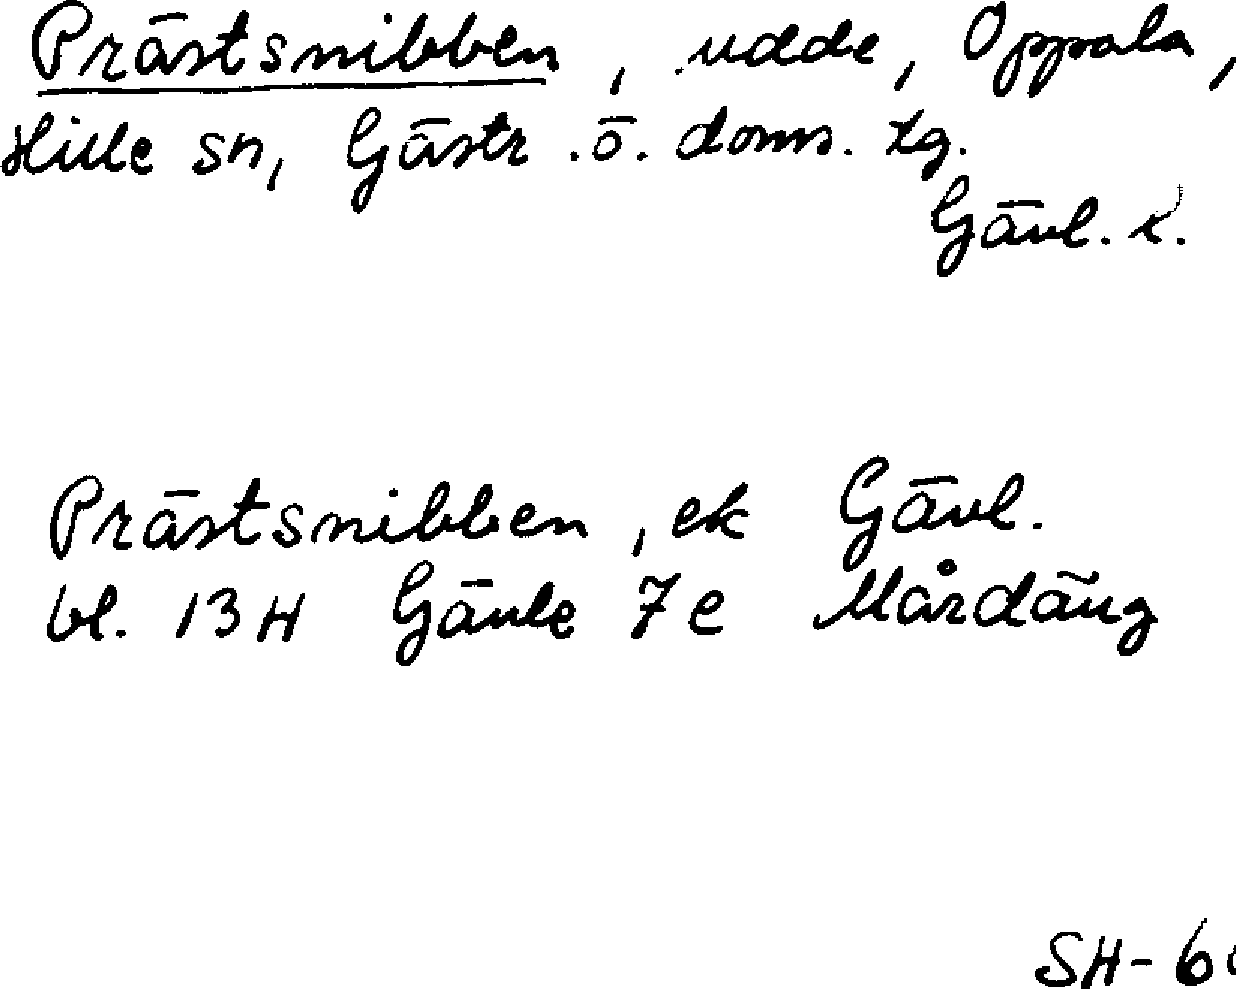 Prästsnibben, udde, Oppala,
Hille sn, Gästr. ö. doms. tg.
Gävl. l.
Prästsnibben, ek Gävl.
bl. 13H Gävle 7e Mårdäng
SH-6